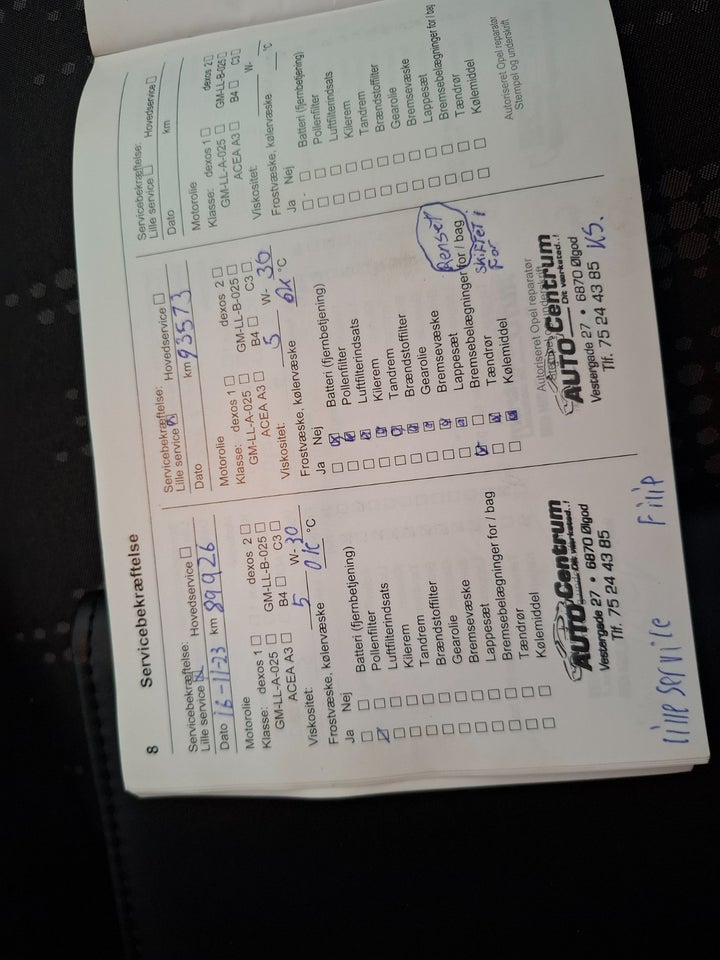 8 Servicebekræftelse
Servicebekræftelse:
Lille service Hovedservice
Dato 16-11-23 km 89926
Motorolie
Klasse: dexos 1 dexos 2
GM-LL-A-025 GM-LL-B-025
ACEA A3 B4 C3
Viskositet: 5 W- 30
Frostvæske, kølervæske OK °C
Ja Nej
Batteri (fjernbetjening)
Pollenfilter
Luftfilterindsats
Kilerem
Tandrem
Brændstoffilter
Gearolie
Bremsevæske
Lappesæt
Bremsebelægninger for / bag
Tændrør
Kølemiddel
AUTO Centrum
Dit værksted..!
Vestergade 27 • 6870 Ølgod
Tlf. 75 24 43 85
Lille service Filip
Servicebekræftelse:
Lille service Hovedservice
Dato km 93573
Motorolie
Klasse: dexos 1 dexos 2
GM-LL-A-025 GM-LL-B-025
ACEA A3 B4 C3
Viskositet: 5 W- 30
Frostvæske, kølervæske OK °C
Ja Nej
Batteri (fjernbetjening)
Pollenfilter
Luftfilterindsats
Kilerem
Tandrem
Brændstoffilter
Gearolie
Bremsevæske
Lappesæt
Bremsebelægninger for / bag
Renset
skiftet i
For
Tændrør
Kølemiddel
Autoriseret Opel reparatør
AUTO Centrum
Dit værksted..!
Vestergade 27 • 6870 Ølgod
Tlf. 75 24 43 85 KS.
Servicebekræftelse:
Lille service Hovedservice
Dato km
Motorolie
Klasse: dexos 1 dexos 2
GM-LL-A-025 GM-LL-B-025
ACEA A3 B4 C3
Viskositet: W-
Frostvæske, kølervæske °C
Ja Nej
Batteri (fjernbetjening)
Pollenfilter
Luftfilterindsats
Kilerem
Tandrem
Brændstoffilter
Gearolie
Bremsevæske
Lappesæt
Bremsebelægninger for / bag
Tændrør
Kølemiddel
Autoriseret Opel reparatør
Stempel og underskrift